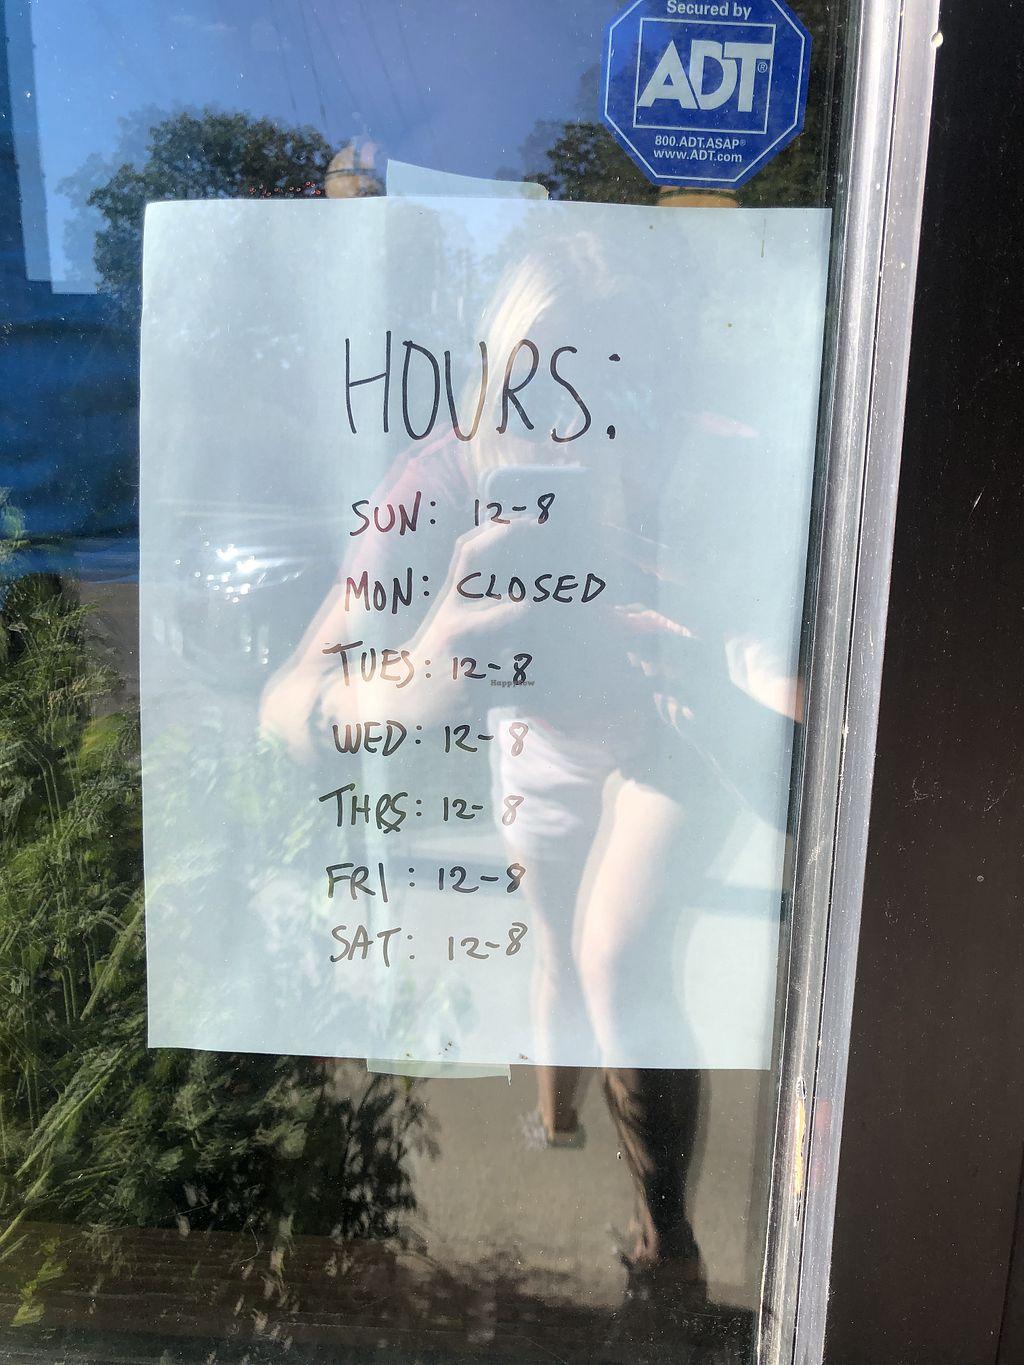 Secured by
ADT®
800.ADT.ASAP®
www.ADT.com
HOURS:
SUN: 12-8
MON: CLOSED
TUES: 12-8
HappyCow
WED: 12-8
THRS: 12-8
FRI: 12-8
SAT: 12-8